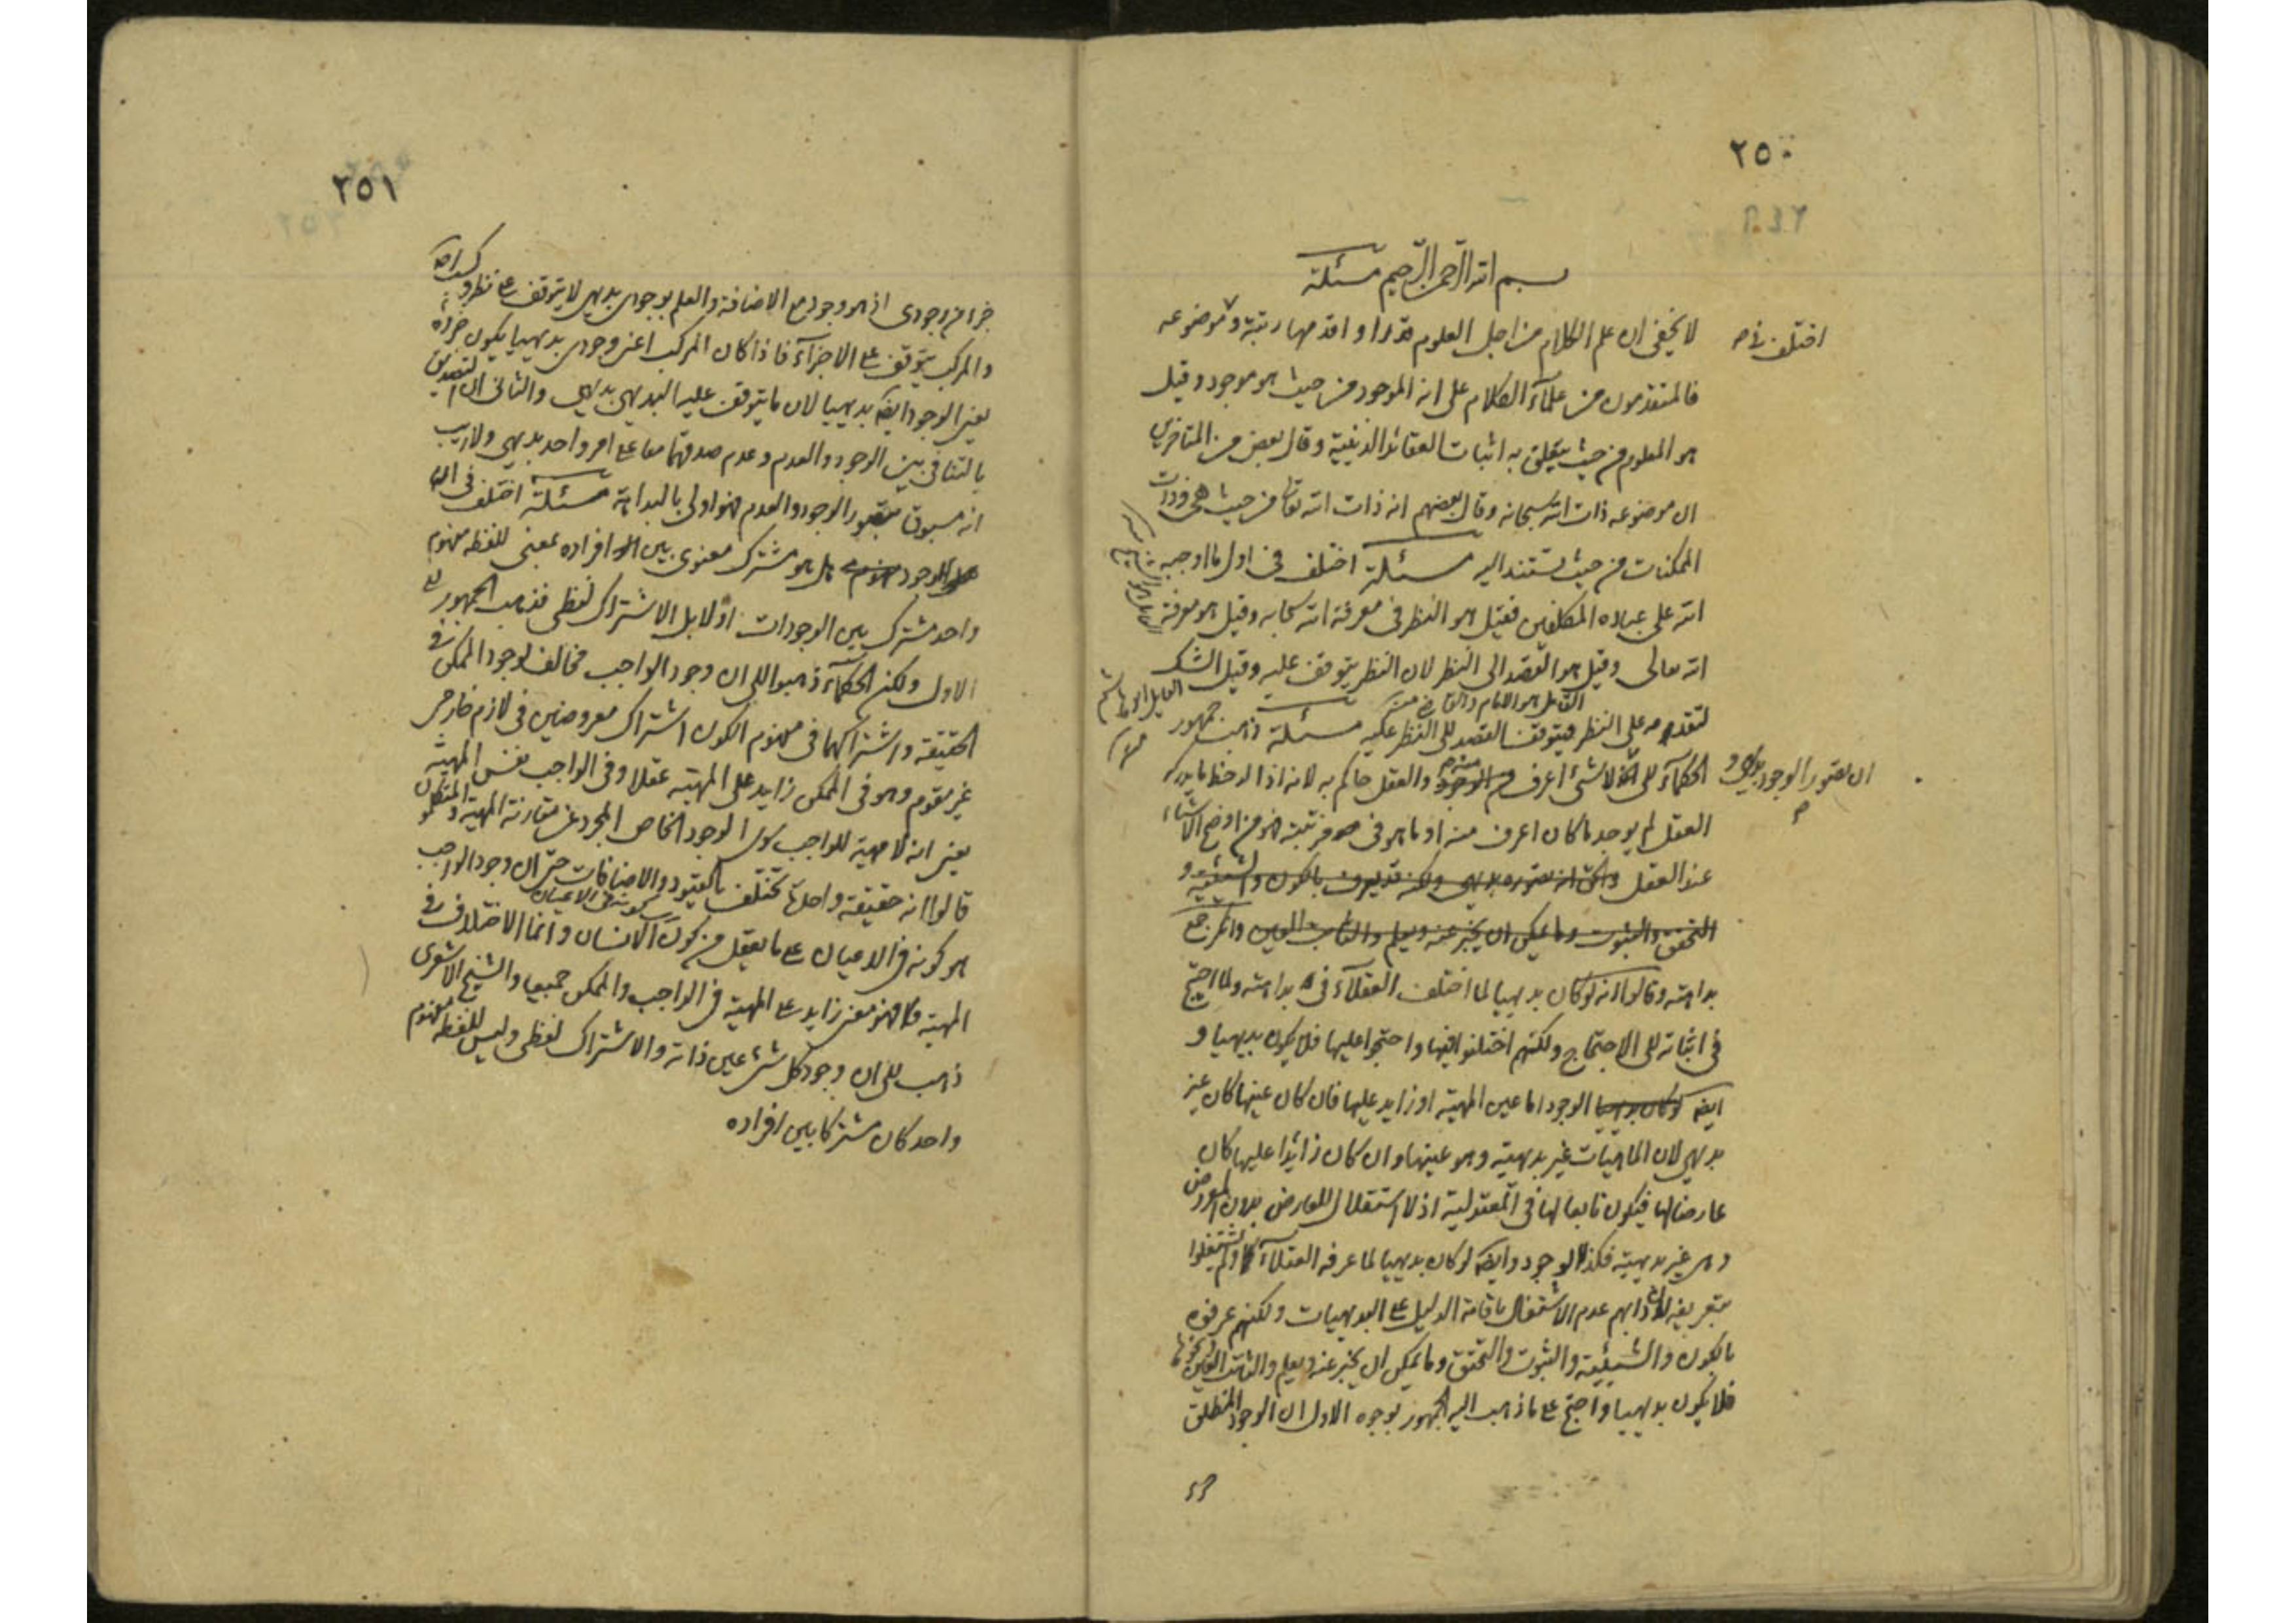 ٢٥٠
بسم الله الرحمن الرحيم مسئلة
لا يخفى ان علم الكلام من اجل العلوم قدرا واقدمها رتبة وموضوعه
اختلف فى
فالمتقدمون من علمآء الكلام على انه الموجود من حيث هو موجود وقيل
هو المعلوم من حيث يتعلق به اثبات العقائد الدينية وقال بعض من المتاخرين
ان موضوعه ذات الله سبحانه وقال بعضهم انه ذات الله تعالى من حيث هى وذات
الممكنات من حيث تستند اليه مسئلة اختلف فى اول ما اوجبه
الله على عباده المكلفين فقيل هو النظر فى معرفة الله سبحانه وقيل هو معرفة
الله تعالى وقيل هو القصد الى النظر لان النظر يتوقف عليه وقيل الشك
القائل هو الامام والقاضى منه
لتقدمه على النظر فيتوقف القصد الى النظر عليه مسئلة ذهب جمهور
الحكمآء الى انه لا شئ اعرف من الوجود والعقل حاكم به لانه اذا لاحظ ما يدركه
ان تصور الوجود بديهى و
العقل لم يوجد ما كان اعرف منه او ما هو فى مرتبته فهو من اوضح الاشياء
عند العقل والحق انه تصوره بديهى ولكنه قد يعرف بالكون والشيئية و
التحقق والثبوت وما يمكن ان يخبر عنه ويعلم والثابت العين وانكر جمع
بداهته وقالوا انه لو كان بديهيا لما اختلف العقلآء فى بداهته ولما احتيج
فى اثباته الى الاحتجاج ولكنهم اختلفوا فيها واحتجوا عليها فلا يكون بديهيا و
ايضا لو كان بديهيا الوجود اما عين المهية او زايد عليها فان كان عينها كان غير
بديهى لان الماهيات غير بديهية وهو عينها وان كان زائدا عليها كان
عارضا لها فيكون تابعا لها فى المعقولية اذ لا استقلال للعارض بدون المعروض
وهى غير بديهية فكذا الوجود وايضا لو كان بديهيا لما عرفه العقلآء ولم يشتغلوا
بتعريفه كما دابهم عدم الاشتغال باقامة الدليل على البديهيات ولكنهم عرفوه
بالكون والشيئية والثبوت والتحقق وما يمكن ان يخبر عنه ويعلم والثابت العين ونحوها
فلا يكون بديهيا واحتج على ما ذهب اليه الجمهور بوجوه الاول ان الوجود المطلق
جزء
٢٥١
جزء من وجودى اذ هو وجود مع الاضافة والعلم بوجودى بديهى لا يتوقف على نظر وكسب
والمركب يتوقف على الاجزآء فاذا كان المركب اعنى وجودى بديهيا يكون جزؤه
يعنى الوجود ايضا بديهيا لان ما يتوقف عليه البديهى بديهى والثانى ان التصديق
بالتنافى بين الوجود والعدم وعدم صدقهما معا على امر واحد بديهى ولا ريب
انه مسبوق بتصور الوجود والعدم فهو اولى بالبداهة مسئلة اختلف فى ان
الوجود هل هو مشترك معنوى بين افراده بمعنى للفظه مفهوم
واحد مشترك بين الوجودات او لا بل الاشتراك لفظى فذهب الجمهور الى
الاول ولكن الحكمآء ذهبوا الى ان وجود الواجب مخالف لوجود الممكن فى
الحقيقة واشتراكهما فى مفهوم الكون اشتراك معروضين فى لازم خارجى
غير مقوم وهو فى الممكن زايد على المهية عقلا وفى الواجب نفس المهية
يعنى انه لا مهية للواجب سوى الوجود الخاص المجرد عن مقارنة المهية والمتكلمون
قالوا انه حقيقة واحدة تختلف بالقيود والاضافات حتى ان وجود الواجب
هو كونه فى الاعيان على ما يعقل من كون الانسان وانما الاختلاف فى
كونه فى الاعيان
المهية فهو معنى زايد على المهية فى الواجب والممكن جميعا والشيخ الاشعرى
ذهب الى ان وجود كل شئ عين ذاته والاشتراك لفظى وليس للفظه مفهوم
واحد كان مشتركا بين افراده